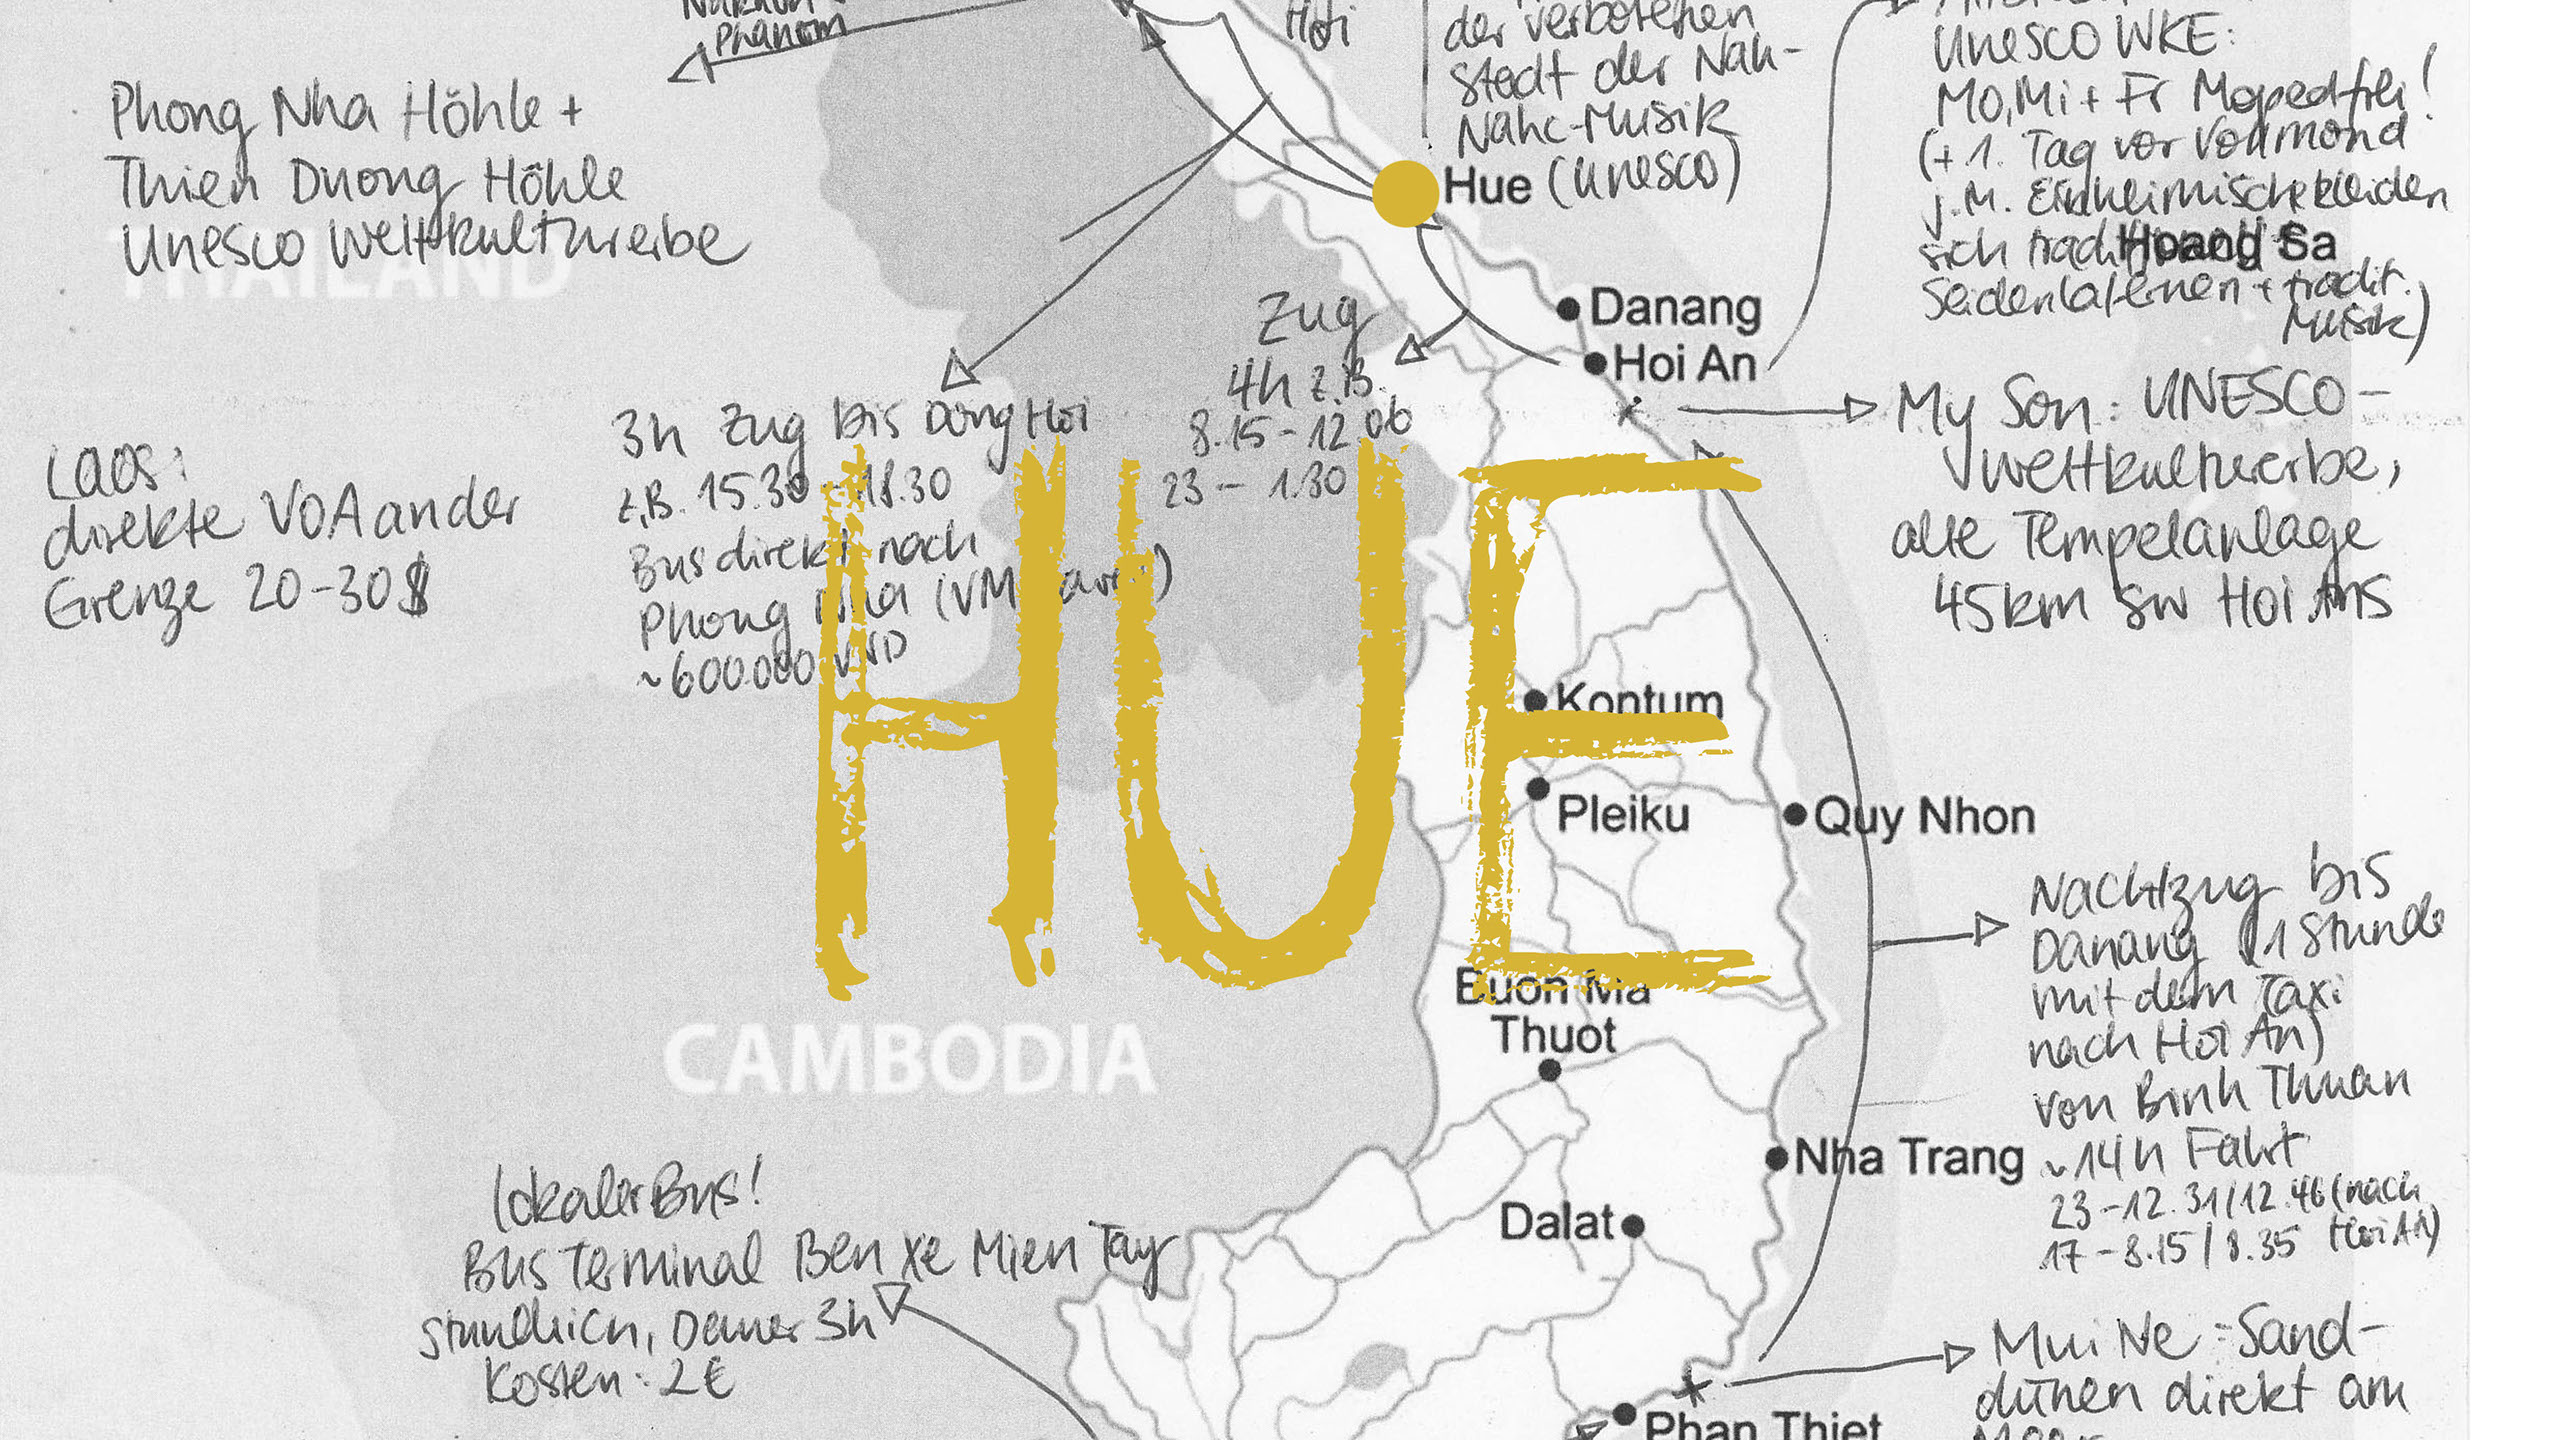 Phanom
Hoi
der verbotenen
Stadt der Nah-
Nahc-Musik
(Unesco)
Hue
Unesco WKE:
Mo, Mi + Fr Mopedfrei!
(+ 1. Tag vor Vollmond
j.M. Einheimische kleiden
sich
Hoang Sa
Seidenlaternen + tradit.
Musik)
Phong Nha Höhle +
Thien Duong Höhle
Unesco Weltkulturerbe
THAILAND
Danang
Hoi An
Zug
4h z.B.
8.15 - 12.06
23 - 1.30
3h Zug bis Dong Hoi
z.B. 15.30 - 18.30
Bus direkt nach
Phong Nha
~600.000 VND
Laos:
direkte VOA an der
Grenze 20-30$
My Son: UNESCO-
Weltkulturerbe,
alte Tempelanlage
45km sw Hoi Ans
HUE
Kontum
Pleiku
Quy Nhon
Buon Ma
Thuot
CAMBODIA
Nachtzug bis
Danang (1 Stunde
mit dem Taxi
nach Hoi An)
von Binh Thuan
~14h Fahrt
23-12.31/12.46 (nach
17-8.15/8.35 Hoi An)
Nha Trang
Dalat
lokaler Bus!
Bus Terminal Ben Xe Mien Tay
stündlich, Dauer 3h
Kosten: 2€
Mui Ne - Sand-
dünen direkt am
Phan Thiet